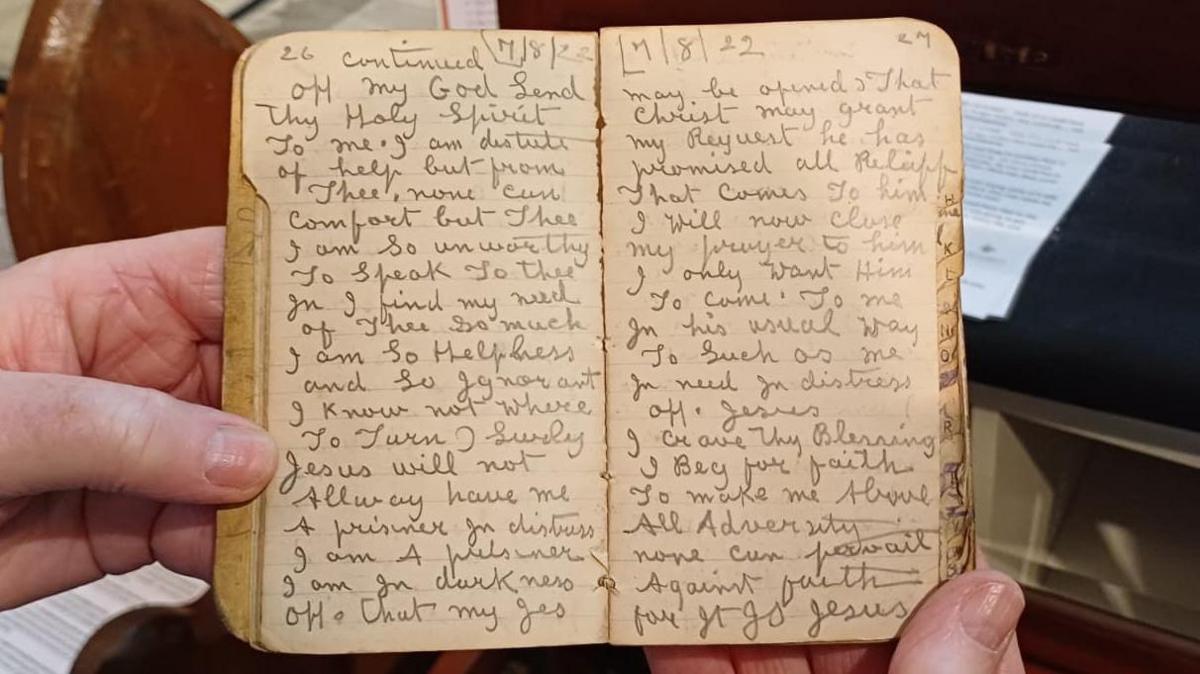 26 continued 7/8/22
Oh my God Send
Thy Holy Spirit
To me. I am distute
of help but from
Thee, none can
Comfort but Thee
I am So unworthy
To Speak To thee
In I find my need
of Thee So much
I am So Helpness
and So Ignorant
I Know not Where
To Turn) Surly
Jesus will not
Allway have me
A prisner In distress
I am A prisner
I am In darkness
Oh. that my Jes
7/8/22 27
may be opened) That
Christ may grant
my Request he has
promised all
That Comes To him.
I Will now Close
my prayer to him
I only Want Him
To Come. To me
In his usual Way
To Such as me
In need In distress
Oh. Jesus
I crave Thy Blessing
I Beg for faith
To make me Above
All Adversity
none can pervail
Against faith
for It Is Jesus